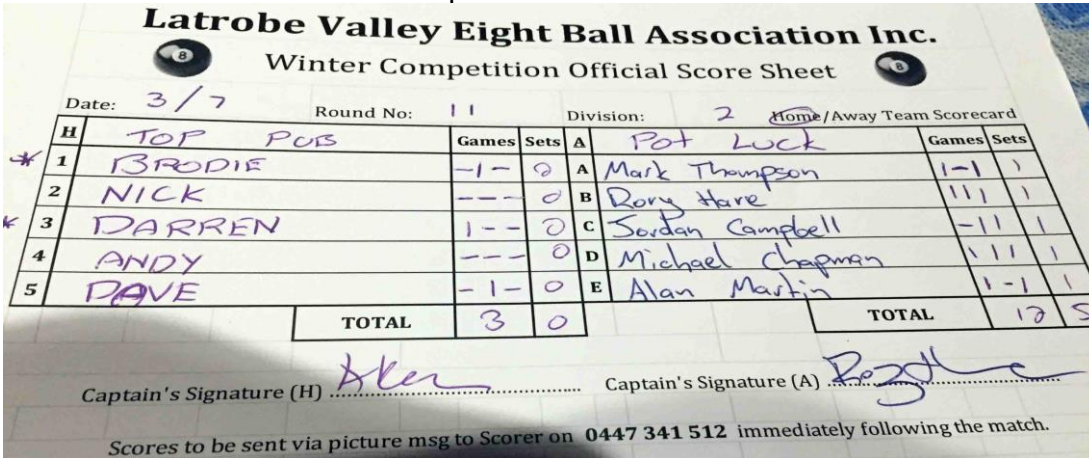 Latrobe Valley Eight Ball Association Inc.
Winter Competition Official Score Sheet
Date: 3/7 Round No: 11 Division: 2 Home/Away Team Scorecard
H TOP PUB Games Sets A Pot Luck Games Sets
* 1 BRODIE -1- 0 A Mark Thompson 1-1 1
2 NICK --- 0 B Rory Hare 111 1
* 3 DARREN 1-- 0 C Jordan Campbell -11 1
4 ANDY --- 0 D Michael Chapman 111 1
5 DAVE -1- 0 E Alan Martin 1-1 1
TOTAL 3 0 TOTAL 12 5
Captain's Signature (H) Captain's Signature (A)
Scores to be sent via picture msg to Scorer on 0447 341 512 immediately following the match.